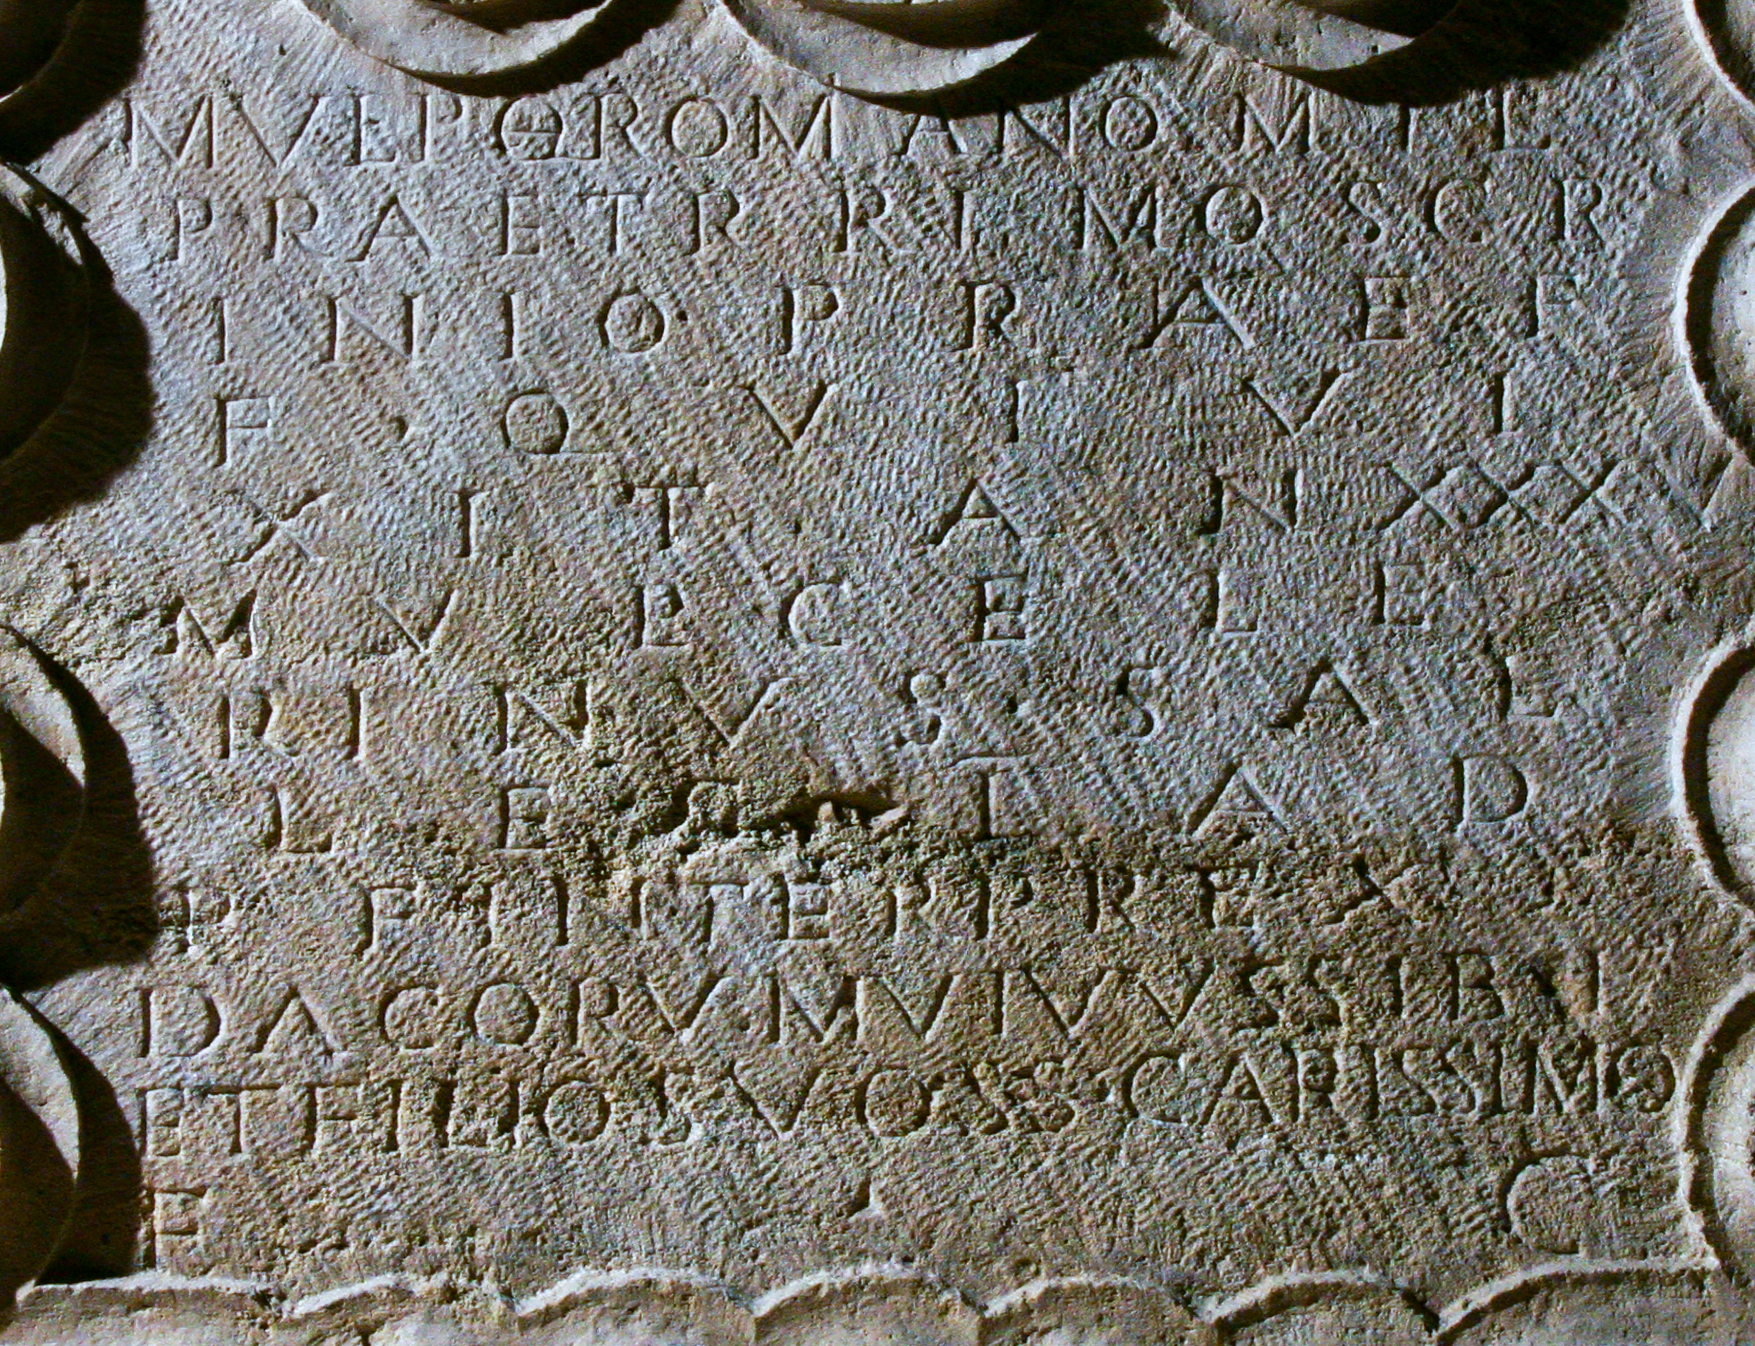 M VLP ROMANO MIL
PRAETR RIMO SCR
INIO PRAEF
F · QVI VI
XIT AN XXXV
M VLP CELE
RINVS · SAL
LEG I AD
P F INTERPREX
DACORVM VIVVS SIBI
ET FILIO S V O SS CARISSIMO
F C